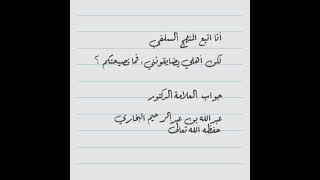 أنا اتبع المنهج السلفي
لكن أهلي يضايقونني، فما نصيحتكم ؟
جواب العلامة الدكتور
عبدالله بن عبدالرحيم البخاري
حفظه الله تعالى